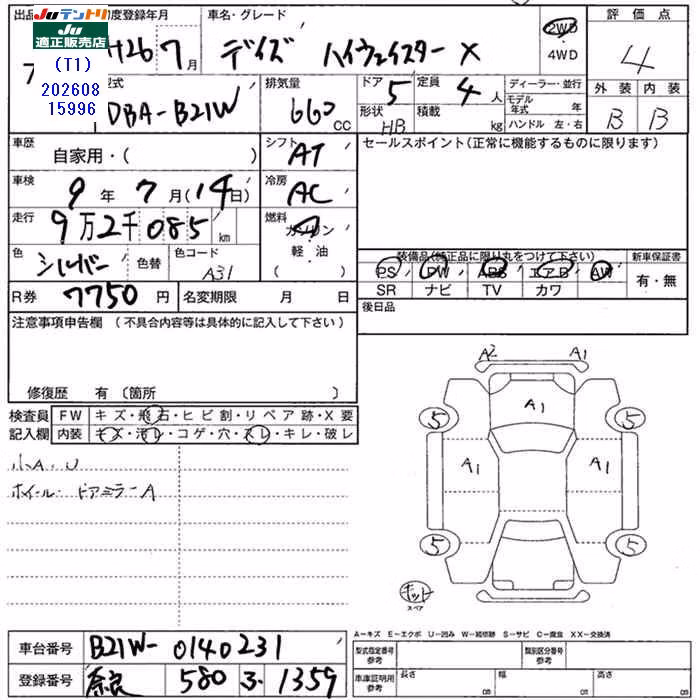 出品
Juテントリ
Ju
適正販売店
(T1)
202608
15996
初度登録年月
H26 7月
車名・グレード
デイズ ハイウェイスター X
2WD
4WD
評価点
4
外装 内装
B B
型式
DBA-B21W
排気量
660 CC
ドア 5
形状 HB
定員 4 人
積載 kg
ディーラー・並行
モデル年式 年
ハンドル 左・右
車歴
自家用・( )
シフト AT
セールスポイント(正常に機能するものに限ります)
車検 9年 7月(14日)
冷房 AC
走行 9万2千085 km
燃料 ガソリン
軽・油
( )
色 シルバー 色替
色コード A31
装備品(純正品に限り丸をつけて下さい)
新車保証書
PS PW ABS エアB AW
SR ナビ TV カワ
有・無
R券 7750 円
名変期限 月 日
後日品
注意事項申告欄 (不具合内容等は具体的に記入して下さい)
修復歴 有 〔箇所 〕
検査員記入欄
FW キズ・飛石・ヒビ割・リペア跡・X要
内装 キズ・汚レ・コゲ・穴・スレ・キレ・破レ
小A.U
ホイール・ドアミラーA
A2 A1
A1
5 5
A1 A1
5 5
キット
スペア
A-キズ E-エクボ U-凹み W-補修跡 S-サビ C-腐食 XX-交換済
車台番号 B21W-0140231
型式指定番号 参考
類別区分番号 参考
登録番号 奈良 580 ふ 1359
車庫証明用 参考
長さ cm 幅 cm 高さ cm